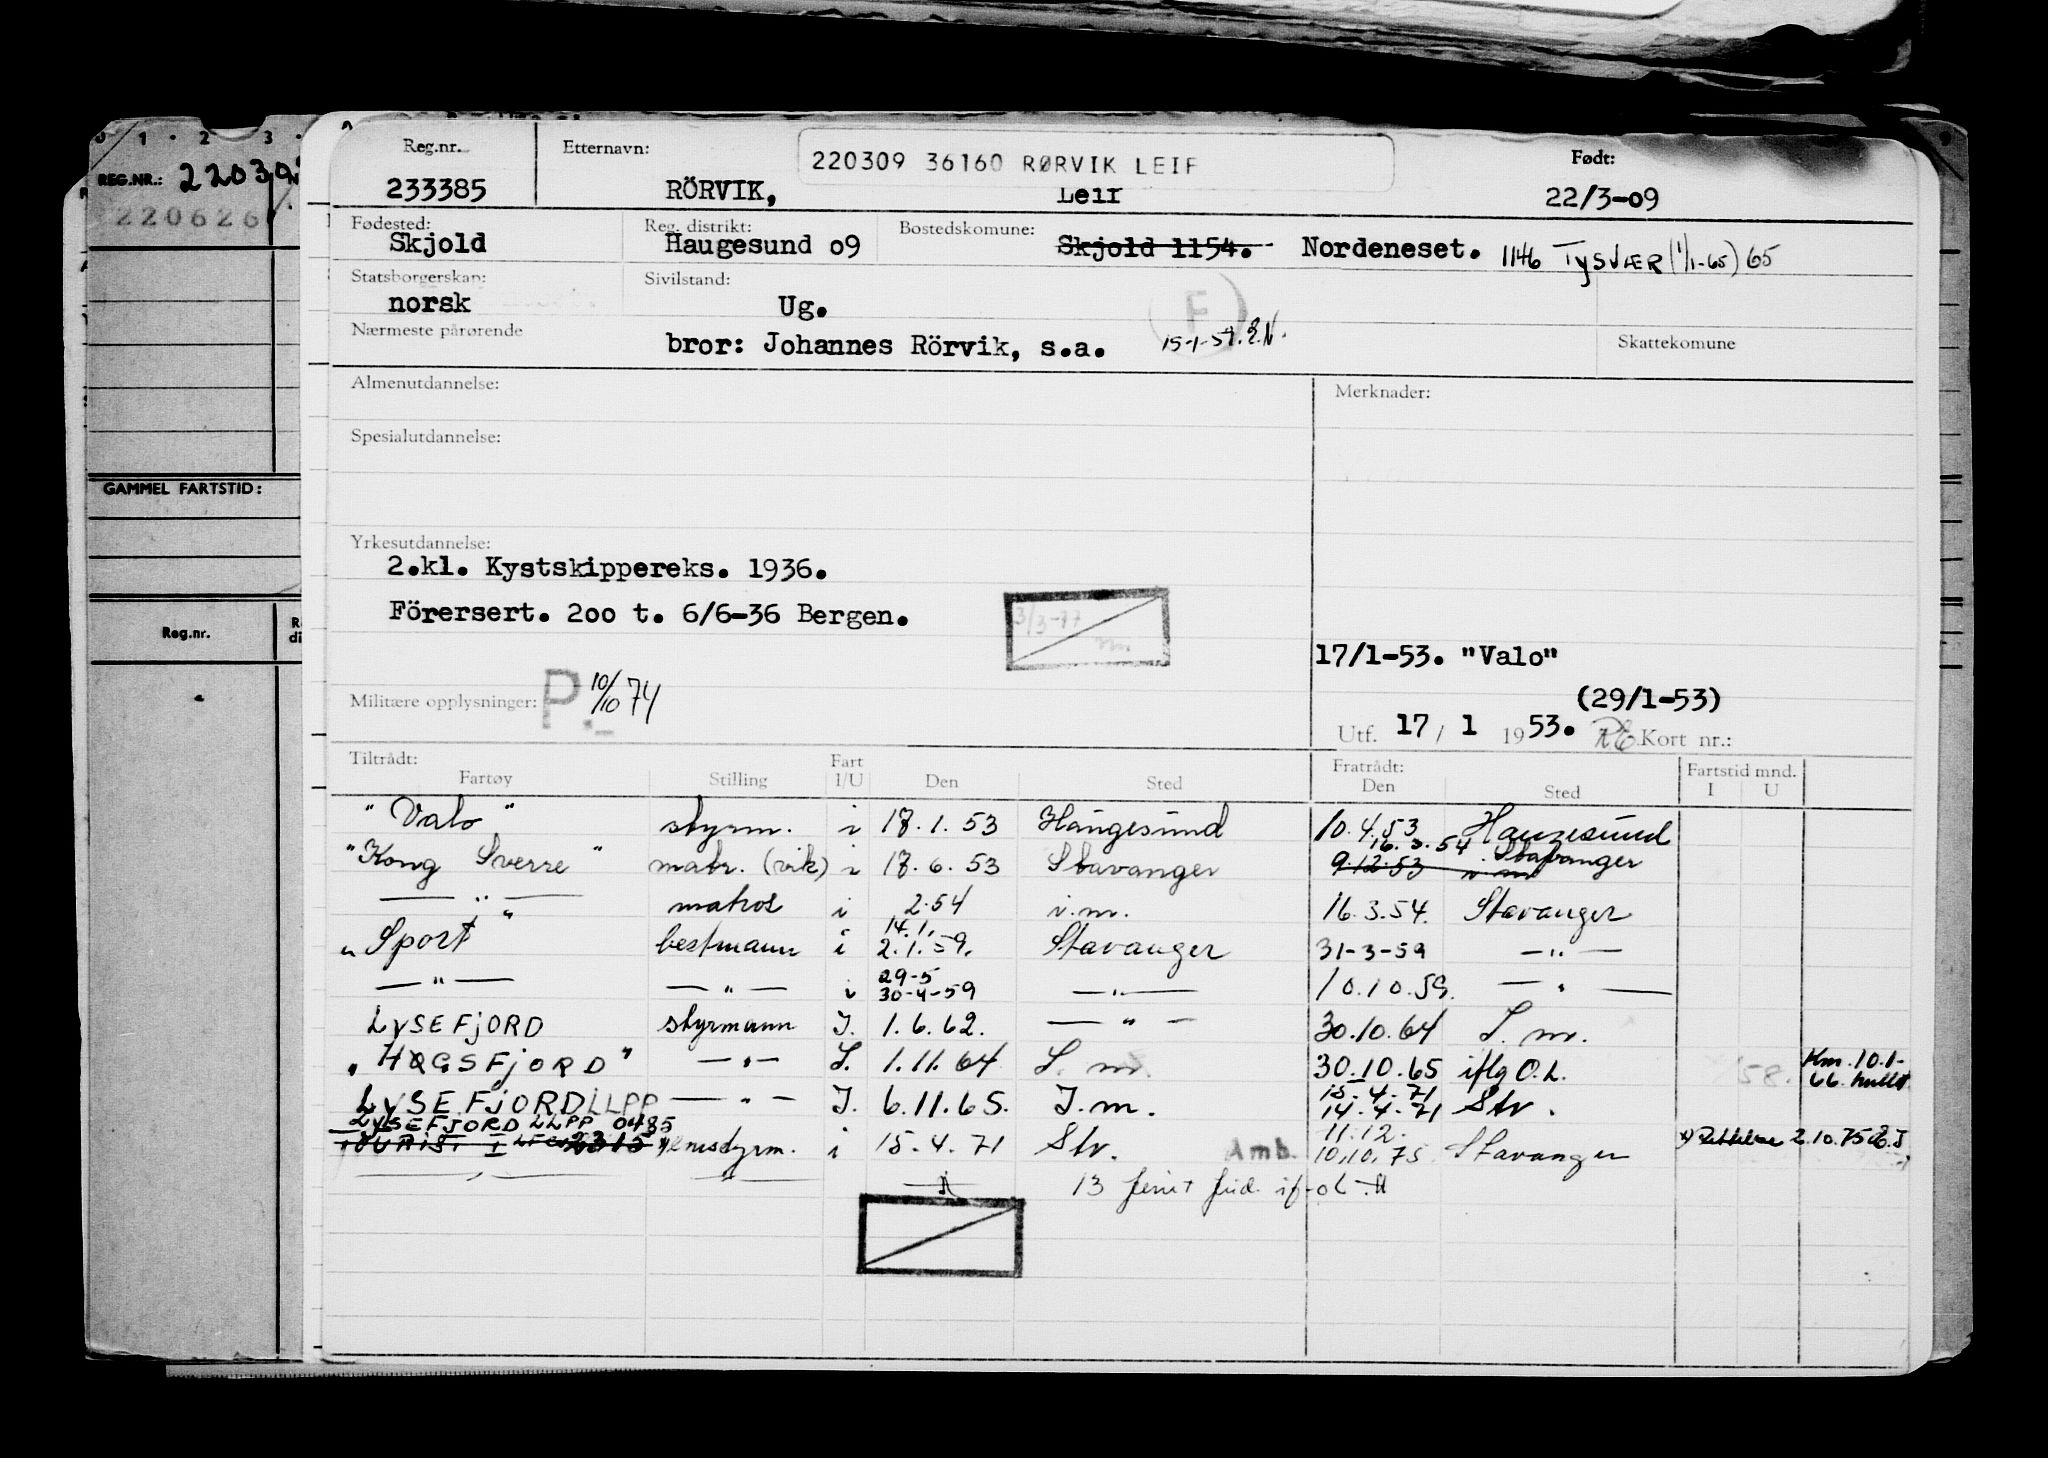 0 1 · 2 3 ·
REG.NR.: 22030
220626
GAMMEL FARTSTID:
Reg.nr.
Reg.nr. Etternavn: 220309 36160 RØRVIK LEIF Født:
233385 RÖRVIK, Leif 22/3-09
Fødested: Reg. distrikt: Bostedskomune:
Skjold Haugesund o9 Skjold 1154. Nordeneset. 1146 TYSVÆR (1/1-65) 65
Statsborgerskap: Sivilstand:
norsk Ug. F
Nærmeste pårørende bror: Johannes Rörvik, s.a. 15-1-59. E.N. Skattekomune
Almenutdannelse: Merknader:
Spesialutdannelse:
Yrkesutdannelse:
2.kl. Kystskippereks. 1936.
Förersert. 2oo t. 6/6-36 Bergen. 3/3-77
17/1-53. "Valo"
Militære opplysninger: P. 10/10 74 (29/1-53)
Utf. 17 / 1 1953. Kort nr.:
Tiltrådt: Fart Fratrådt: Fartstid mnd.
Fartøy Stilling I/U Den Sted Den Sted I U
"Valo" styrm. i 18.1.53 Haugesund 10.4.53 Haugesund
16.3.54 Stavanger
"Kong Sverre" matr. (vik) i 18.6.53 Stavanger 9.12.53 i m
— " — matros i 2.54 i.m. 16.3.54. Stavanger
14.1.
"Sport" bestmann i 2.1.59. Stavanger 31-3-59 — " —
29-5
— " — — " — i 30-4-59 — " — 10.10.59. — " —
LYSEFJORD styrmann I. 1.6.62. — " — 30.10.64 I.m.
"HØGSFJORD" — " — I. 1.11.64 I.m. 30.10.65 iflg O.L. 58. Km. 10.1-66. null
15.4.71
LYSEFJORD LLPP — " — I. 6.11.65. I.m. 14.4.71 Stv.
LYSEFJORD LLPP 0485 11.12.
TOURIST I 2315 enestyrm. i 15.4.71 Stv. Amb. 10.10.75 Stavanger x) Rettelse 2.10.75
— " — 13